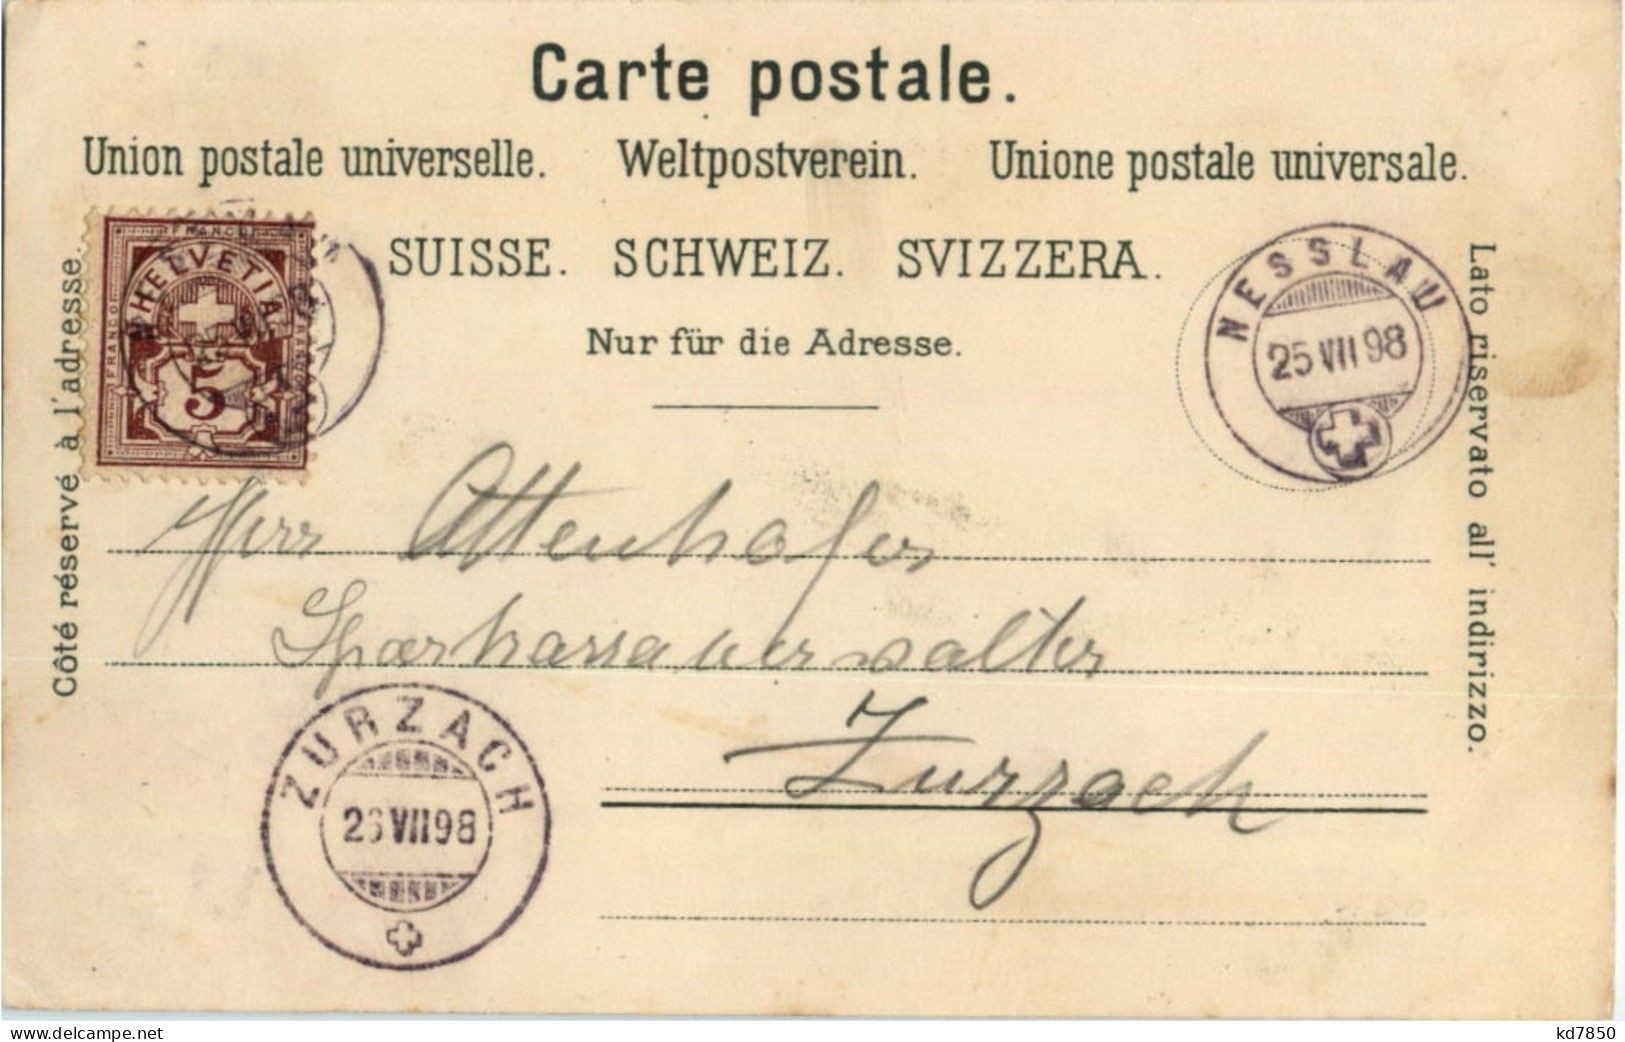 Carte postale.
Union postale universelle. Weltpostverein. Unione postale universale.
SUISSE. SCHWEIZ. SVIZZERA.
Nur für die Adresse.
Côté réservé à l'adresse.
Lato riservato all' indirizzo.
FRANCO
HELVETIA
FRANCO
5
NESSLAU
25 VII 98
Herr Attenhofer
Sparkassaverwalter
Zurzach
ZURZACH
26 VII 98
www.delcampe.net
kd7850